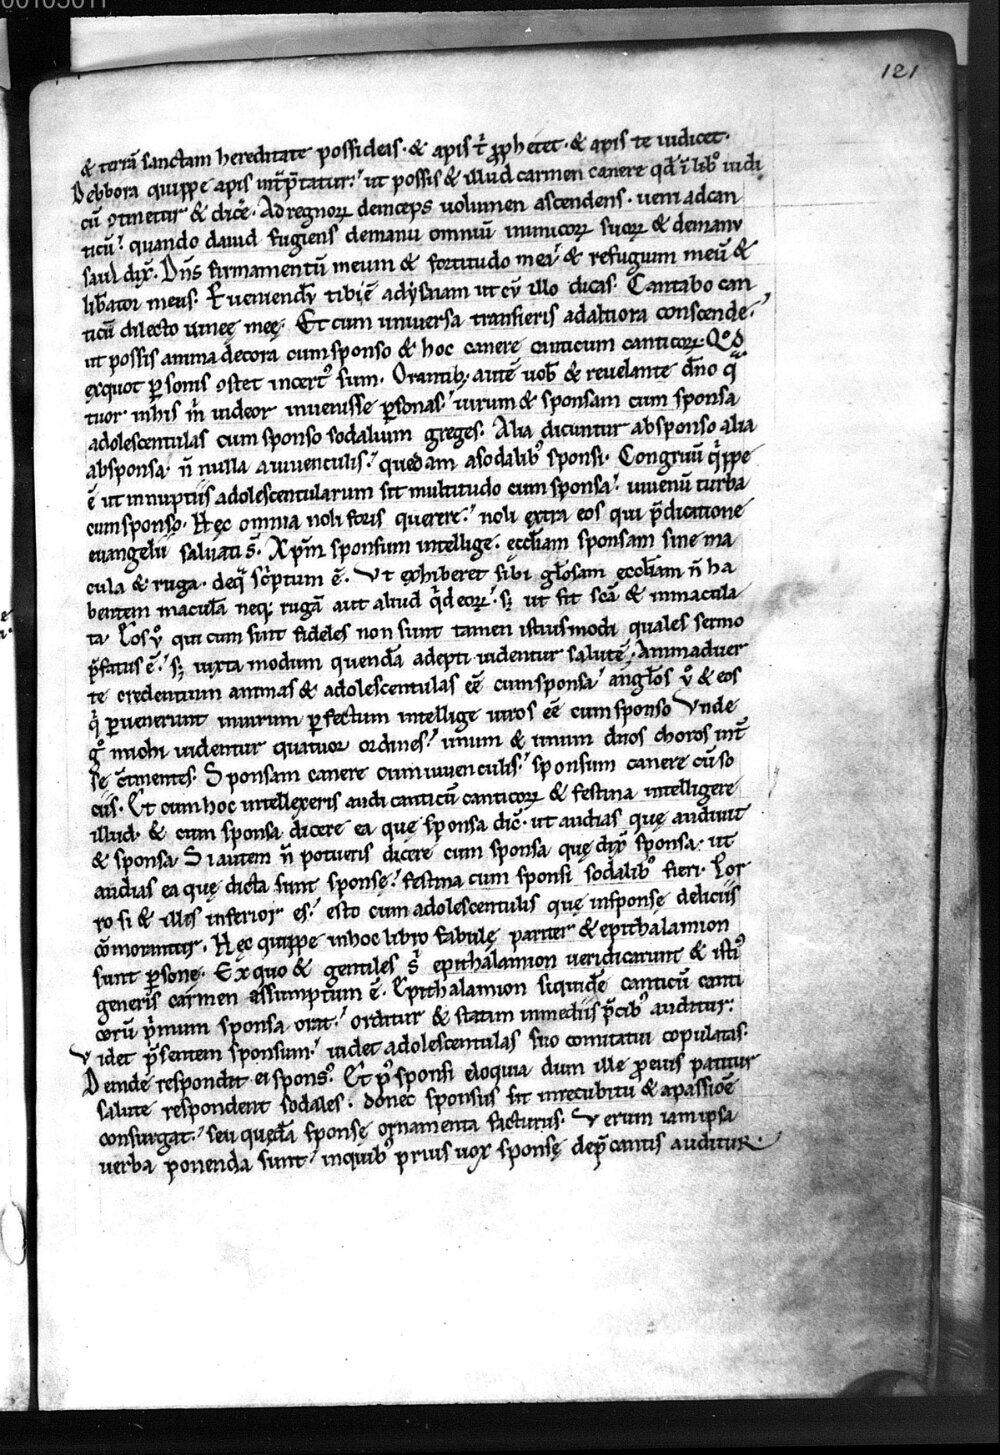 121
& terrā sanctam hereditate possideas · & apis t̄ ꝓphetet · & apis te iudicet ·
Debbora quippe apis int̄p̄tatur ut possis & illud carmen canere qd̄ ī lib̊ iudi
cū ꝯtinetur & dicē · Ad regnoꝝ deinceps uolumen ascendens · ueni adcan
ticū quando dauid fugiens demanu omniū inimicoꝝ suoꝝ & demanu
saul dix̄ · Dn̄s firmamentū meum & fortitudo mea & refugium meū &
lib̄ator meus · Et ueniendū tibi ē ad ysaiam ut cū illo dicas · Cantabo can
ticū dilecto uineę meę · Et cum uniuersa transieris adaltiora conscende ·
ut possis anima decora cum sponso & hoc canere canticum canticoꝝ · Qd̄
exquot ꝑsonis ꝯstet incert᾿ sum · Orantib; autē uob̄ & reuelante dn̄o q
tuor inhis m̄ uideor inuenisse ꝑsonas uirum & sponsam cum sponsa
adolescentulas cum sponso sodalium greges · Alia dicuntur absponso alia
absponsa · n̄ nulla a iuuenculis quedam asodalib᾿ sponsi · Congruū q̄ppe
ē ut innuptiis adolescentularum sit multitudo cum sponsa iuuenū turba
cumsponso · Hęc omnia noli foris querere noli extra eos qui p̄dicatione
euangelii saluati s̄ · Xp̄m sponsum intellige · eccl̄iam sponsam sine ma
cula & ruga · deq̄ sc̄ptum ē · Vt exhiberet sibi gl̄osam eccl̄iam n̄ ha
bentem maculā neq; rugā aut aliud q̄d eoꝝ · sꝫ ut sit scā & inmacula
ta · Eos ū qui cum sint fideles non sunt tamen istiusmodi quales sermo
p̄fatus ē · sꝫ iuxta modum quendā adepti uidentur salutē · Animaduer
te credentium animas & adolescentulas eē cumsponsa angl̄os ū & eos
q̄ ꝑuenerunt inuirum ꝑfectum intellige uiros eē cum sponso Vnde
g̊ michi uidentur quatuor ordines unum & unum duos choros int̄
se c̄tinentes · Sponsam canere cum iuuenculis sponsum canere cū so
ciis · Et cum hoc intellexeris audi canticū canticoꝝ & festina intelligere
illud · & cum sponsa dicere ea quę sponsa dic̄ · ut audias quę audiuit
& sponsa · Si autem n̄ potueris dicere cum sponsa quę dix̄ sponsa · ut
audias ea quę dicta sunt sponsę festina cum sponsi sodalib᾿ fieri · Por
ro si & illis inferior es esto cum adolescentulis quę insponsę deliciis
cōmorantur · Hęc quippe inhoc libro fabulę pariter & epithalamion
sunt ꝑsonę · Ex quo & gentiles s̄ epithalamion uendicarunt & isti᾿
generis carmen assumptum ē · Epithalamion siquidē canticū canti
corū p̄mum sponsa orat orditur & statim inmediis p̄cib᾿ auditur ·
Videt p̄sentem sponsum uidet adolescentulas suo comitatui copulatas ·
Deinde respondit ei spons᾿ · Et p᾿ sponsi eloquia dum ille ꝓ eius patitur
salute respondent sodales · donec sponsus sit inrecubitu & apassiōe
consurgat seu quędā sponsę ornamenta facturus · Verum iam ipsa
uerba ponenda sunt inquib᾿ prius uox sponsę dep̄cantis auditur ·